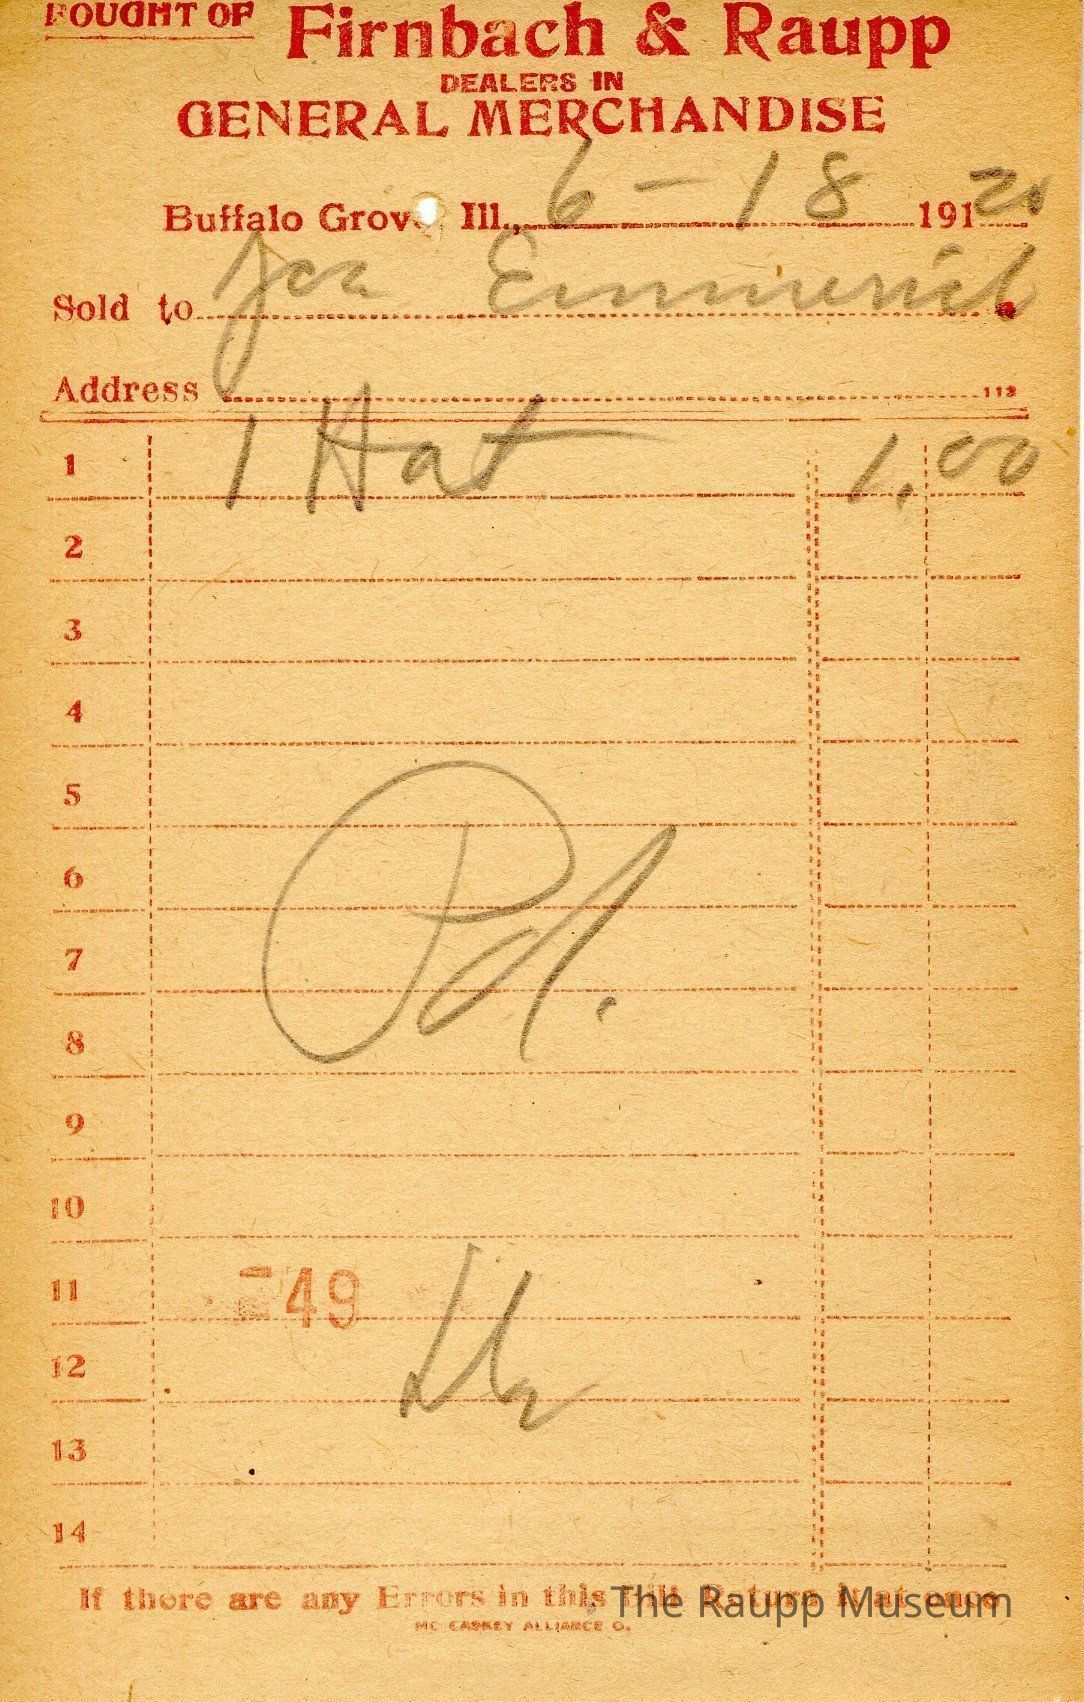 BOUGHT OF Firnbach & Raupp
DEALERS IN
GENERAL MERCHANDISE
Buffalo Grove Ill., 6-18 19120
Sold to Joe Emmerich
Address
113
1 1 Hat 1.00
2
3
4
5
6
7
Pd.
8
9
10
11 49
12
13
14
If there are any Errors in this Bill Return it at once
MC CASKEY ALLIANCE O.
The Raupp Museum